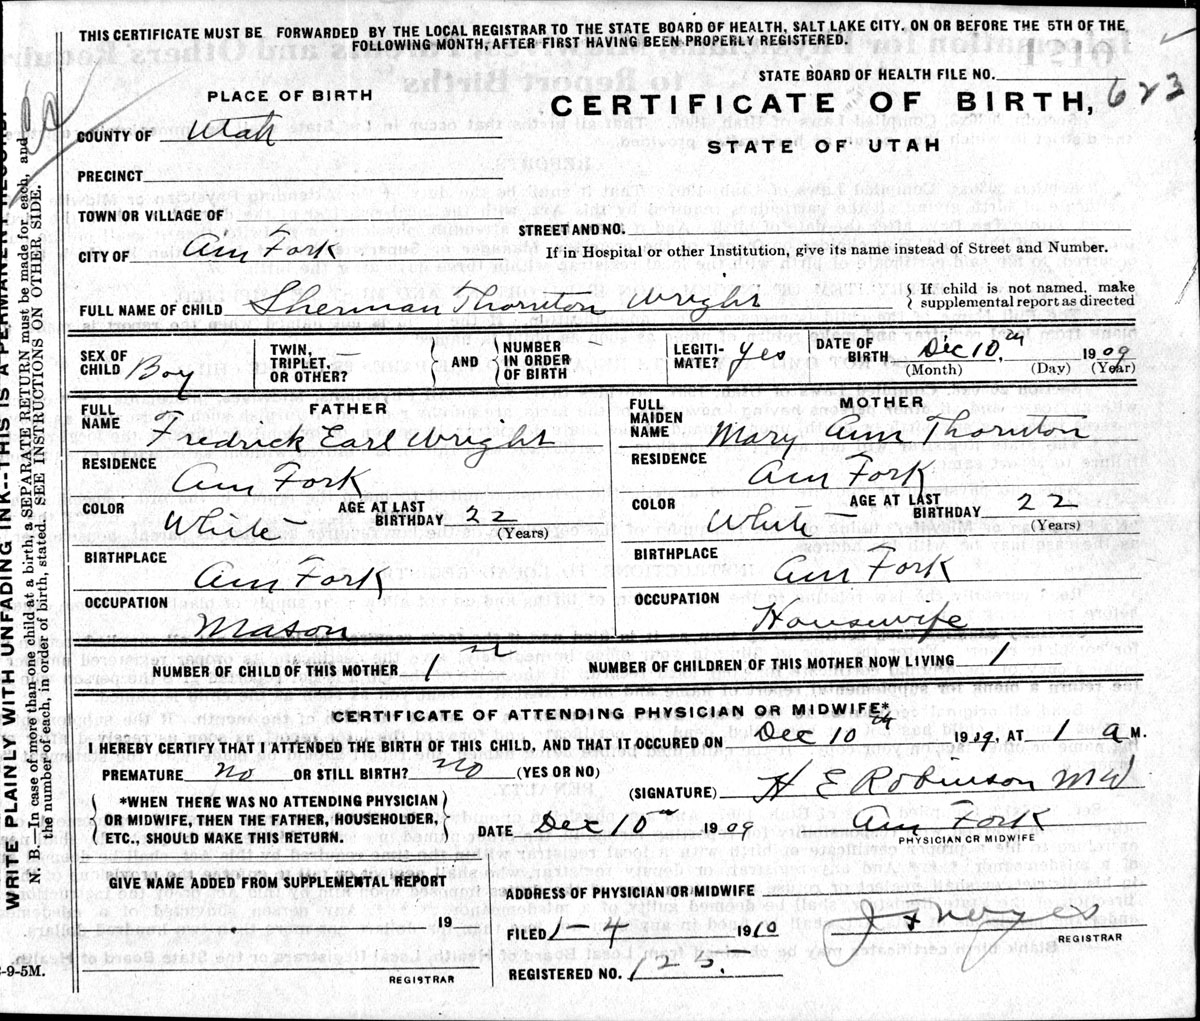 THIS CERTIFICATE MUST BE FORWARDED BY THE LOCAL REGISTRAR TO THE STATE BOARD OF HEALTH, SALT LAKE CITY, ON OR BEFORE THE 5TH OF THE
FOLLOWING MONTH, AFTER FIRST HAVING BEEN PROPERLY REGISTERED.
STATE BOARD OF HEALTH FILE NO.
PLACE OF BIRTH
CERTIFICATE OF BIRTH, 623
COUNTY OF Utah
STATE OF UTAH
PRECINCT
TOWN OR VILLAGE OF
STREET AND NO.
CITY OF Am Fork
If in Hospital or other Institution, give its name instead of Street and Number.
FULL NAME OF CHILD Sherman Thornton Wright
If child is not named, make supplemental report as directed
SEX OF CHILD Boy
TWIN, TRIPLET, OR OTHER? —
AND
NUMBER IN ORDER OF BIRTH
LEGITIMATE? Yes
DATE OF BIRTH Dec 10th 1909
(Month) (Day) (Year)
FATHER
FULL NAME Fredrick Earl Wright
RESIDENCE Am Fork
COLOR White AGE AT LAST BIRTHDAY 22 (Years)
BIRTHPLACE Am Fork
OCCUPATION Mason
MOTHER
FULL MAIDEN NAME Mary Ann Thornton
RESIDENCE Am Fork
COLOR White AGE AT LAST BIRTHDAY 22 (Years)
BIRTHPLACE Am Fork
OCCUPATION Housewife
NUMBER OF CHILD OF THIS MOTHER 1st NUMBER OF CHILDREN OF THIS MOTHER NOW LIVING 1
CERTIFICATE OF ATTENDING PHYSICIAN OR MIDWIFE*
I HEREBY CERTIFY THAT I ATTENDED THE BIRTH OF THIS CHILD, AND THAT IT OCCURED ON Dec 10th 1909, AT 1 a M.
PREMATURE no OR STILL BIRTH? no (YES OR NO)
*WHEN THERE WAS NO ATTENDING PHYSICIAN
OR MIDWIFE, THEN THE FATHER, HOUSEHOLDER,
ETC., SHOULD MAKE THIS RETURN.
(SIGNATURE) H E Robinson MD
DATE Dec 10th 1909 Am Fork
PHYSICIAN OR MIDWIFE
GIVE NAME ADDED FROM SUPPLEMENTAL REPORT
19
REGISTRAR
ADDRESS OF PHYSICIAN OR MIDWIFE
FILED 1-4 1910
REGISTRAR
REGISTERED NO. 123.
WRITE PLAINLY WITH UNFADING INK--THIS IS A PERMANENT RECORD.
N. B.—In case of more than one child at a birth, a SEPARATE RETURN must be made for each, and
the number of each, in order of birth, stated. SEE INSTRUCTIONS ON OTHER SIDE.
-9-5M.